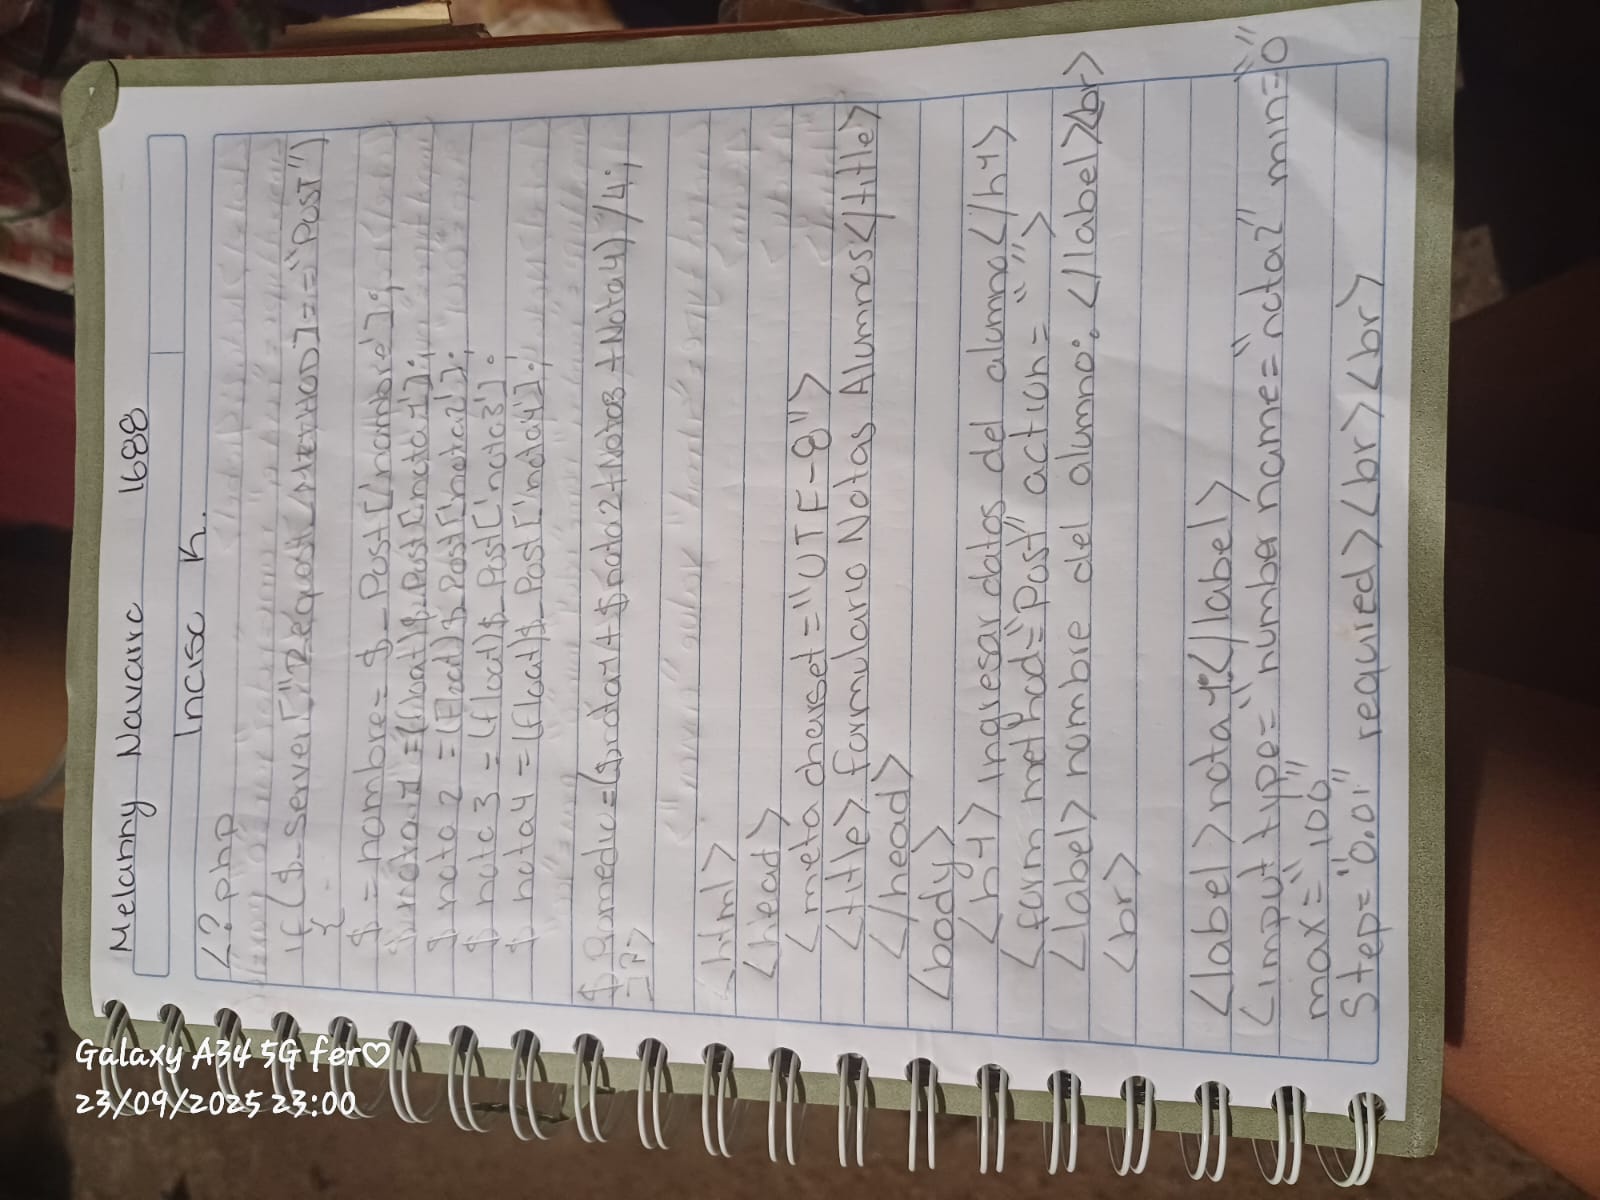 Melanny Navarro 1688
Inciso K.
<?php
if ($_server["Request_METHOD]=="Post")
{
$=nombre= $_Post['nombre'];
$nota1 =(float)$_Post['nota1'];
$nota 2 =(Float)$_Post['nota2'];
$nota 3 =(float)$_Post['nota3'].
$nota4 =(float)$_Post['nota4'];
$Promedio=($nota1+$nota2+Nota3+Nota4)/4;
}?>
<html>
<head>
<meta charset="UTF-8">
<title>Formulario Notas Alumnos</title>
</head>
<body>
<h4>Ingresar datos del alumno</h4>
<form method="Post" action= "">
<label>nombre del alumno:</label><br>
<br>
<label>nota 1:</label>
<input type="number name="nota2" min="0"
max="100"
Step="0.01" required><br><br>
Galaxy A34 5G fer♡
23/09/2025 23:00